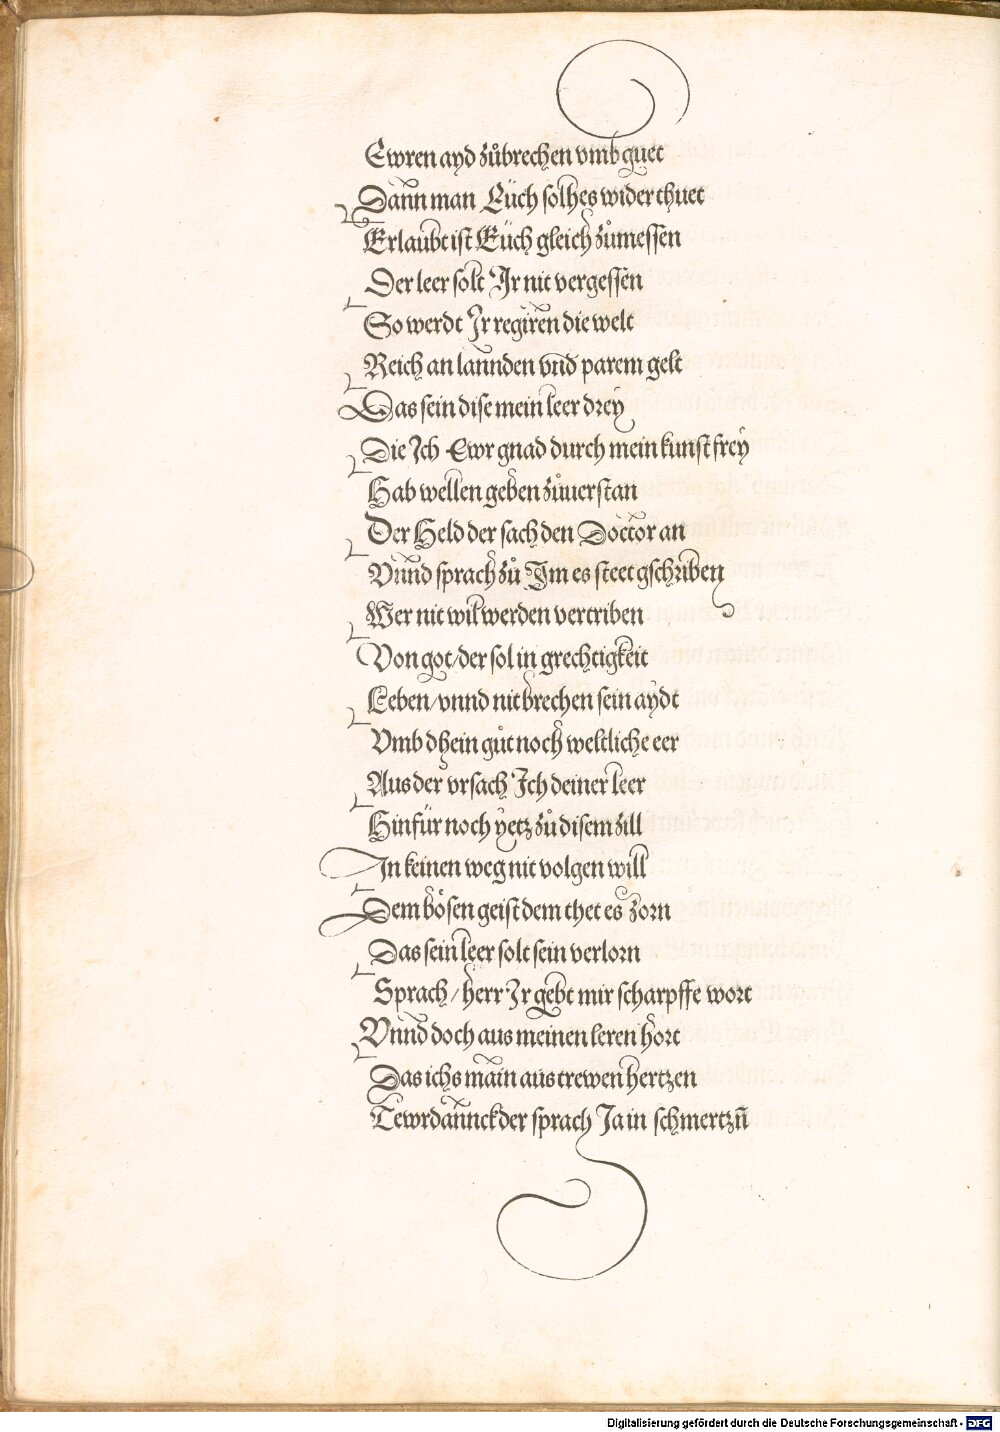 Ewren ayd zůbrechen vmb guet
Dann man Eüch solhes wider thuet
Erlaubt ist Eüch gleich zůmessen
Der leer solt Ir nit vergessen
So werdt Ir regiren die welt
Reich an lannden vnd parem gelt
Das sein dise mein leer drey
Die Ich Ewr gnad durch mein kunst frey
Hab wellen geben zůuerstan
Der Held der sach den Doctor an
Vnnd sprach zů Im es steet gschriben
Wer nit wil werden vertriben
Von got/der sol in grechtigkeit
Leben/vnnd nit brechen sein aydt
Vmb dhein gůt noch weltliche eer
Aus der vrsach Ich deiner leer
Hinfür noch yetz zů disem zill
In keinen weg nit volgen will
Dem bösen geist dem thet es zorn
Das sein leer solt sein verlorn
Sprach/herr Ir gebt mir scharpffe wort
Vnnd doch aus meinen leren hort
Das ichs main aus trewen hertzen
Tewrdannck der sprach Ja in schmertzn̄
Digitalisierung gefördert durch die Deutsche Forschungsgemeinschaft - DFG